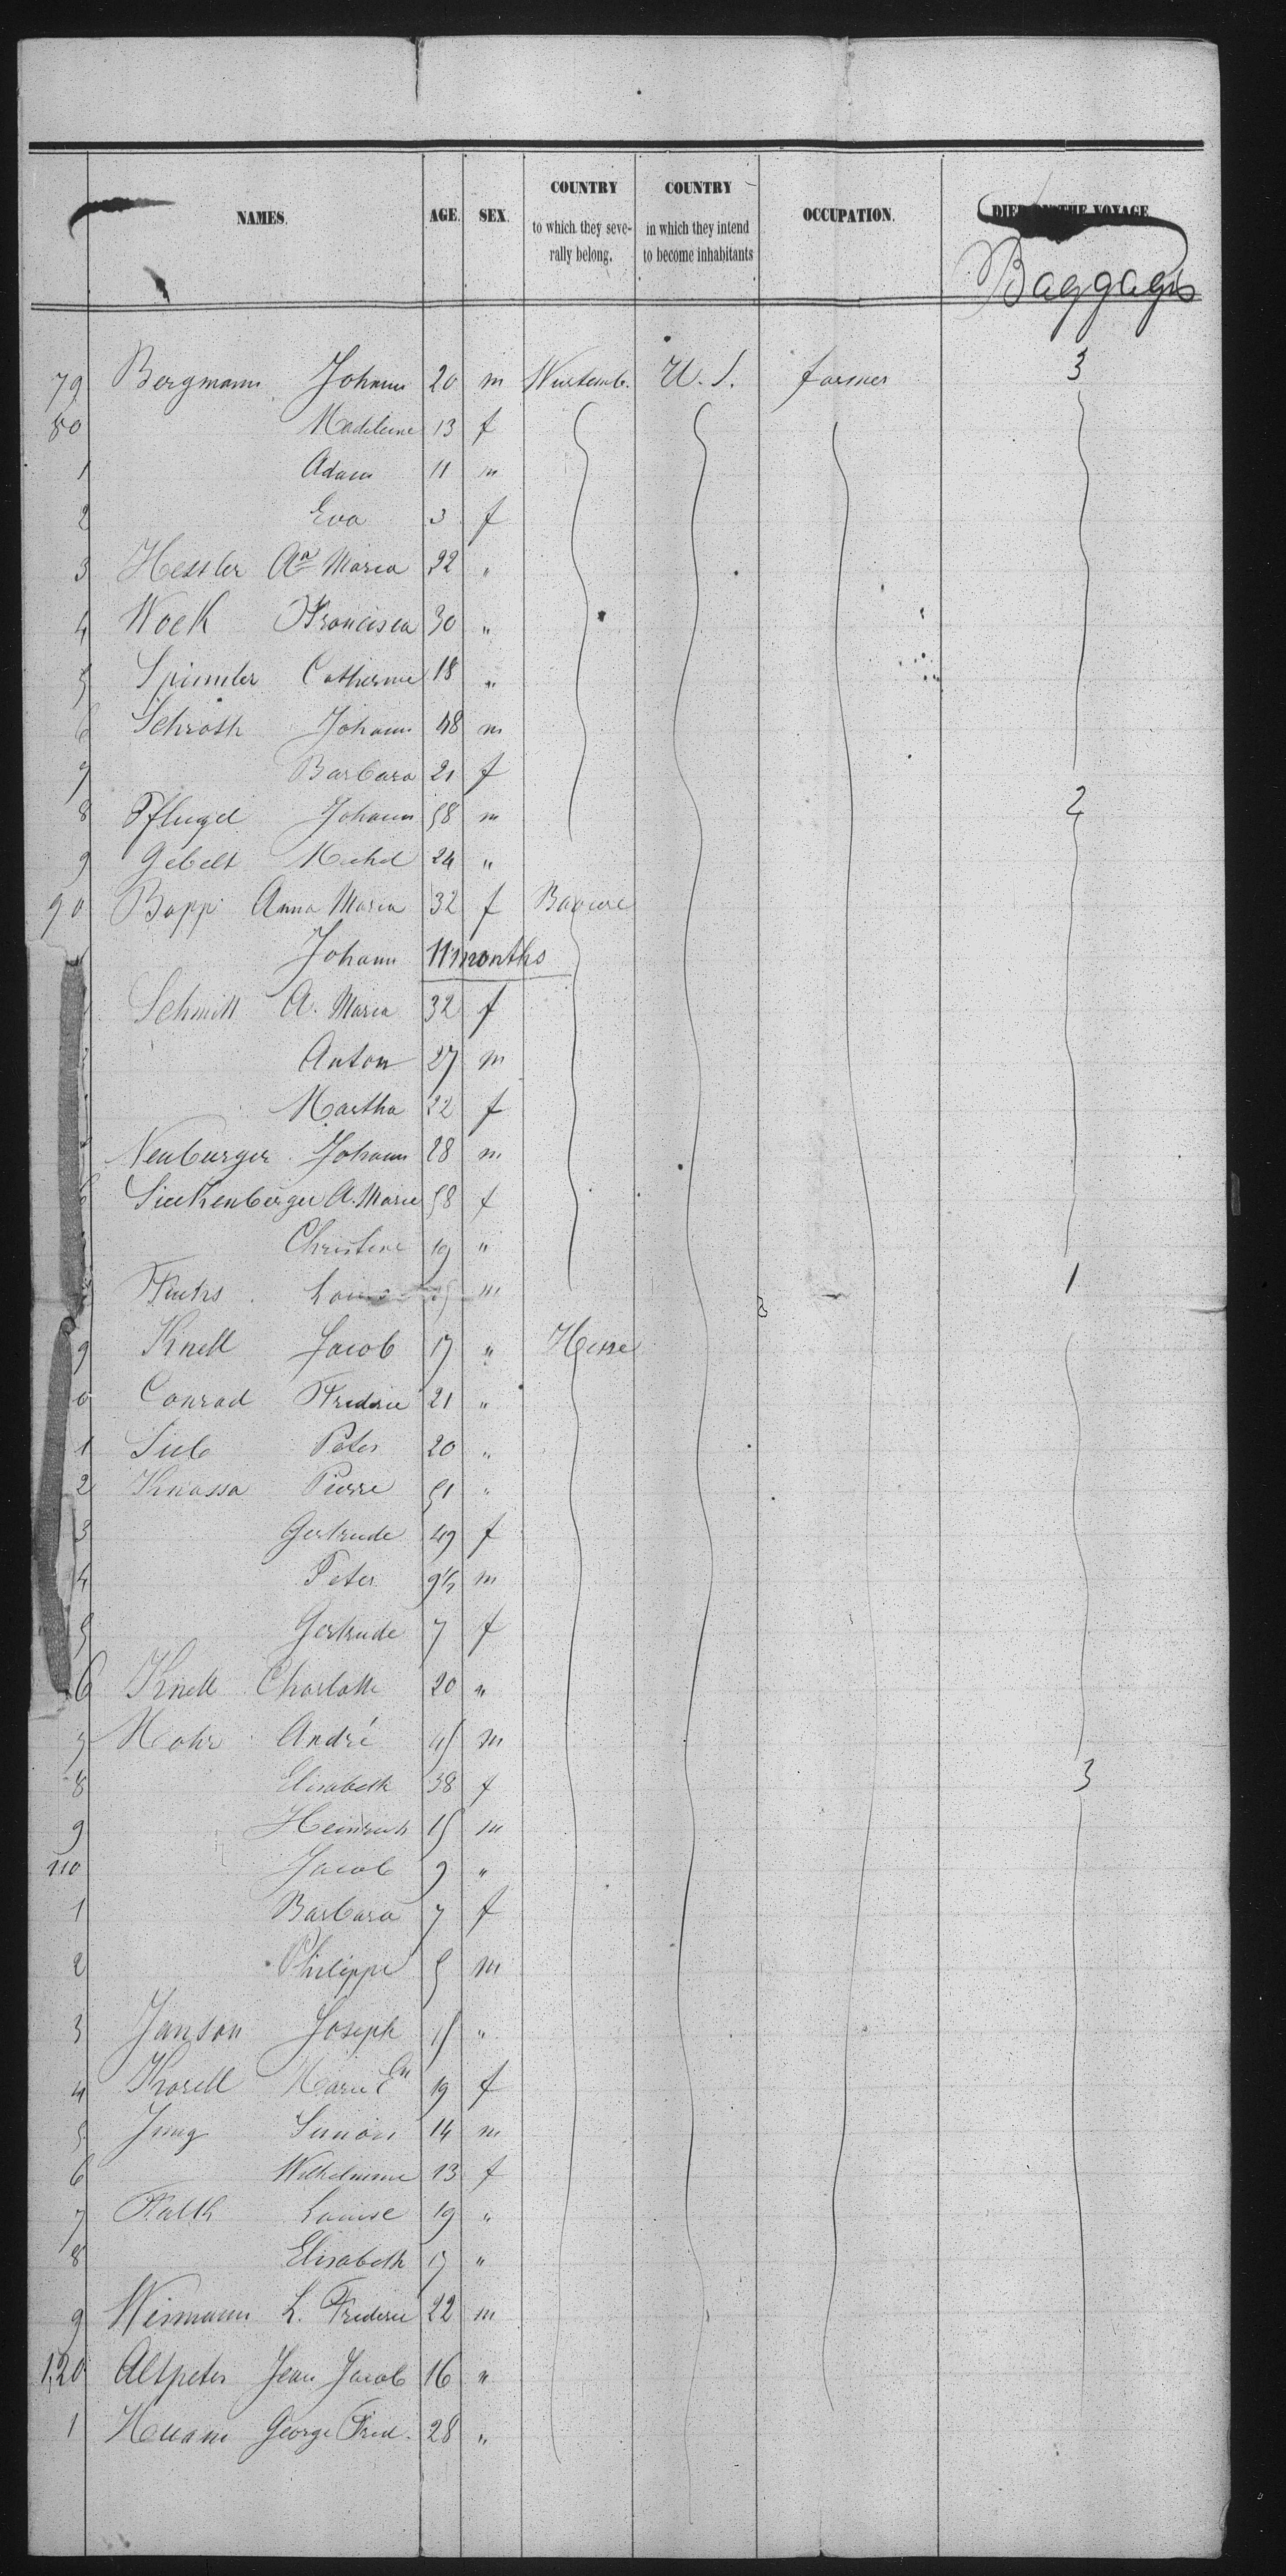 NAMES. AGE. SEX. COUNTRY to which they severally belong. COUNTRY in which they intend to become inhabitants OCCUPATION. DIED ON THE VOYAGE
Baggages
79 Bergmann Johann 20 m Wurtemb. U.S. farmer 3
80 Madeleine 13 f
1 Adam 11 m
2 Eva 3 f
3 Hessler An Maria 22 "
4 Woek Francisca 30 "
5 Spimmler Catherine 18 "
6 Schroth Johann 48 m
7 Barbara 21 f
8 Pflugel Johann 58 m 2
9 Gebelt Michel 24 "
90 Bopp Anna Maria 32 f Baviere
Johann 11 months
Schmitt A. Maria 32 f
Anton 27 m
Martha 22 f
Neuburger Johann 28 m
6 A. Marie 58 f
Christine 19 "
Fuchs Louis m 1
9 Knell Jacob 17 " Hesse
0 Conrad Frederic 21 "
1 Peter 20 "
2 Knassa Pierre 51 "
3 Gertrude 49 f
4 Peter 9½ m
5 Gertrude 7 f
6 Knell Charlotte 20 "
7 Mohr André 45 m
8 Elisabeth 38 f 3
9 Heinrich 15 m
110 Jacob 9 "
1 Barbara 7 f
2 Philippe 5 m
3 Janson Joseph 15 "
4 Korell Marie En 19 f
5 Jung Simon 14 m
6 Wilhelmine 13 f
7 Falth Louise 19 "
8 Elisabeth 17 "
9 Weismann L. Frederic 22 m
120 Altpeter Jean Jacob 16 "
1 George Fred. 28 "